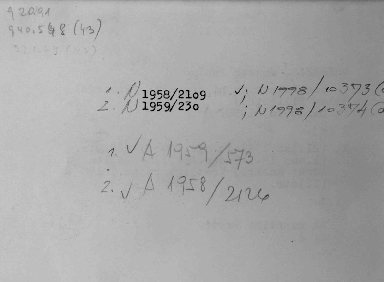 92091
1. N 1958/2109 √; N 1998/10373
2. N 1959/230 ; N 1998/10374
1. √ A 1959/573
2. √ A 1958/2126